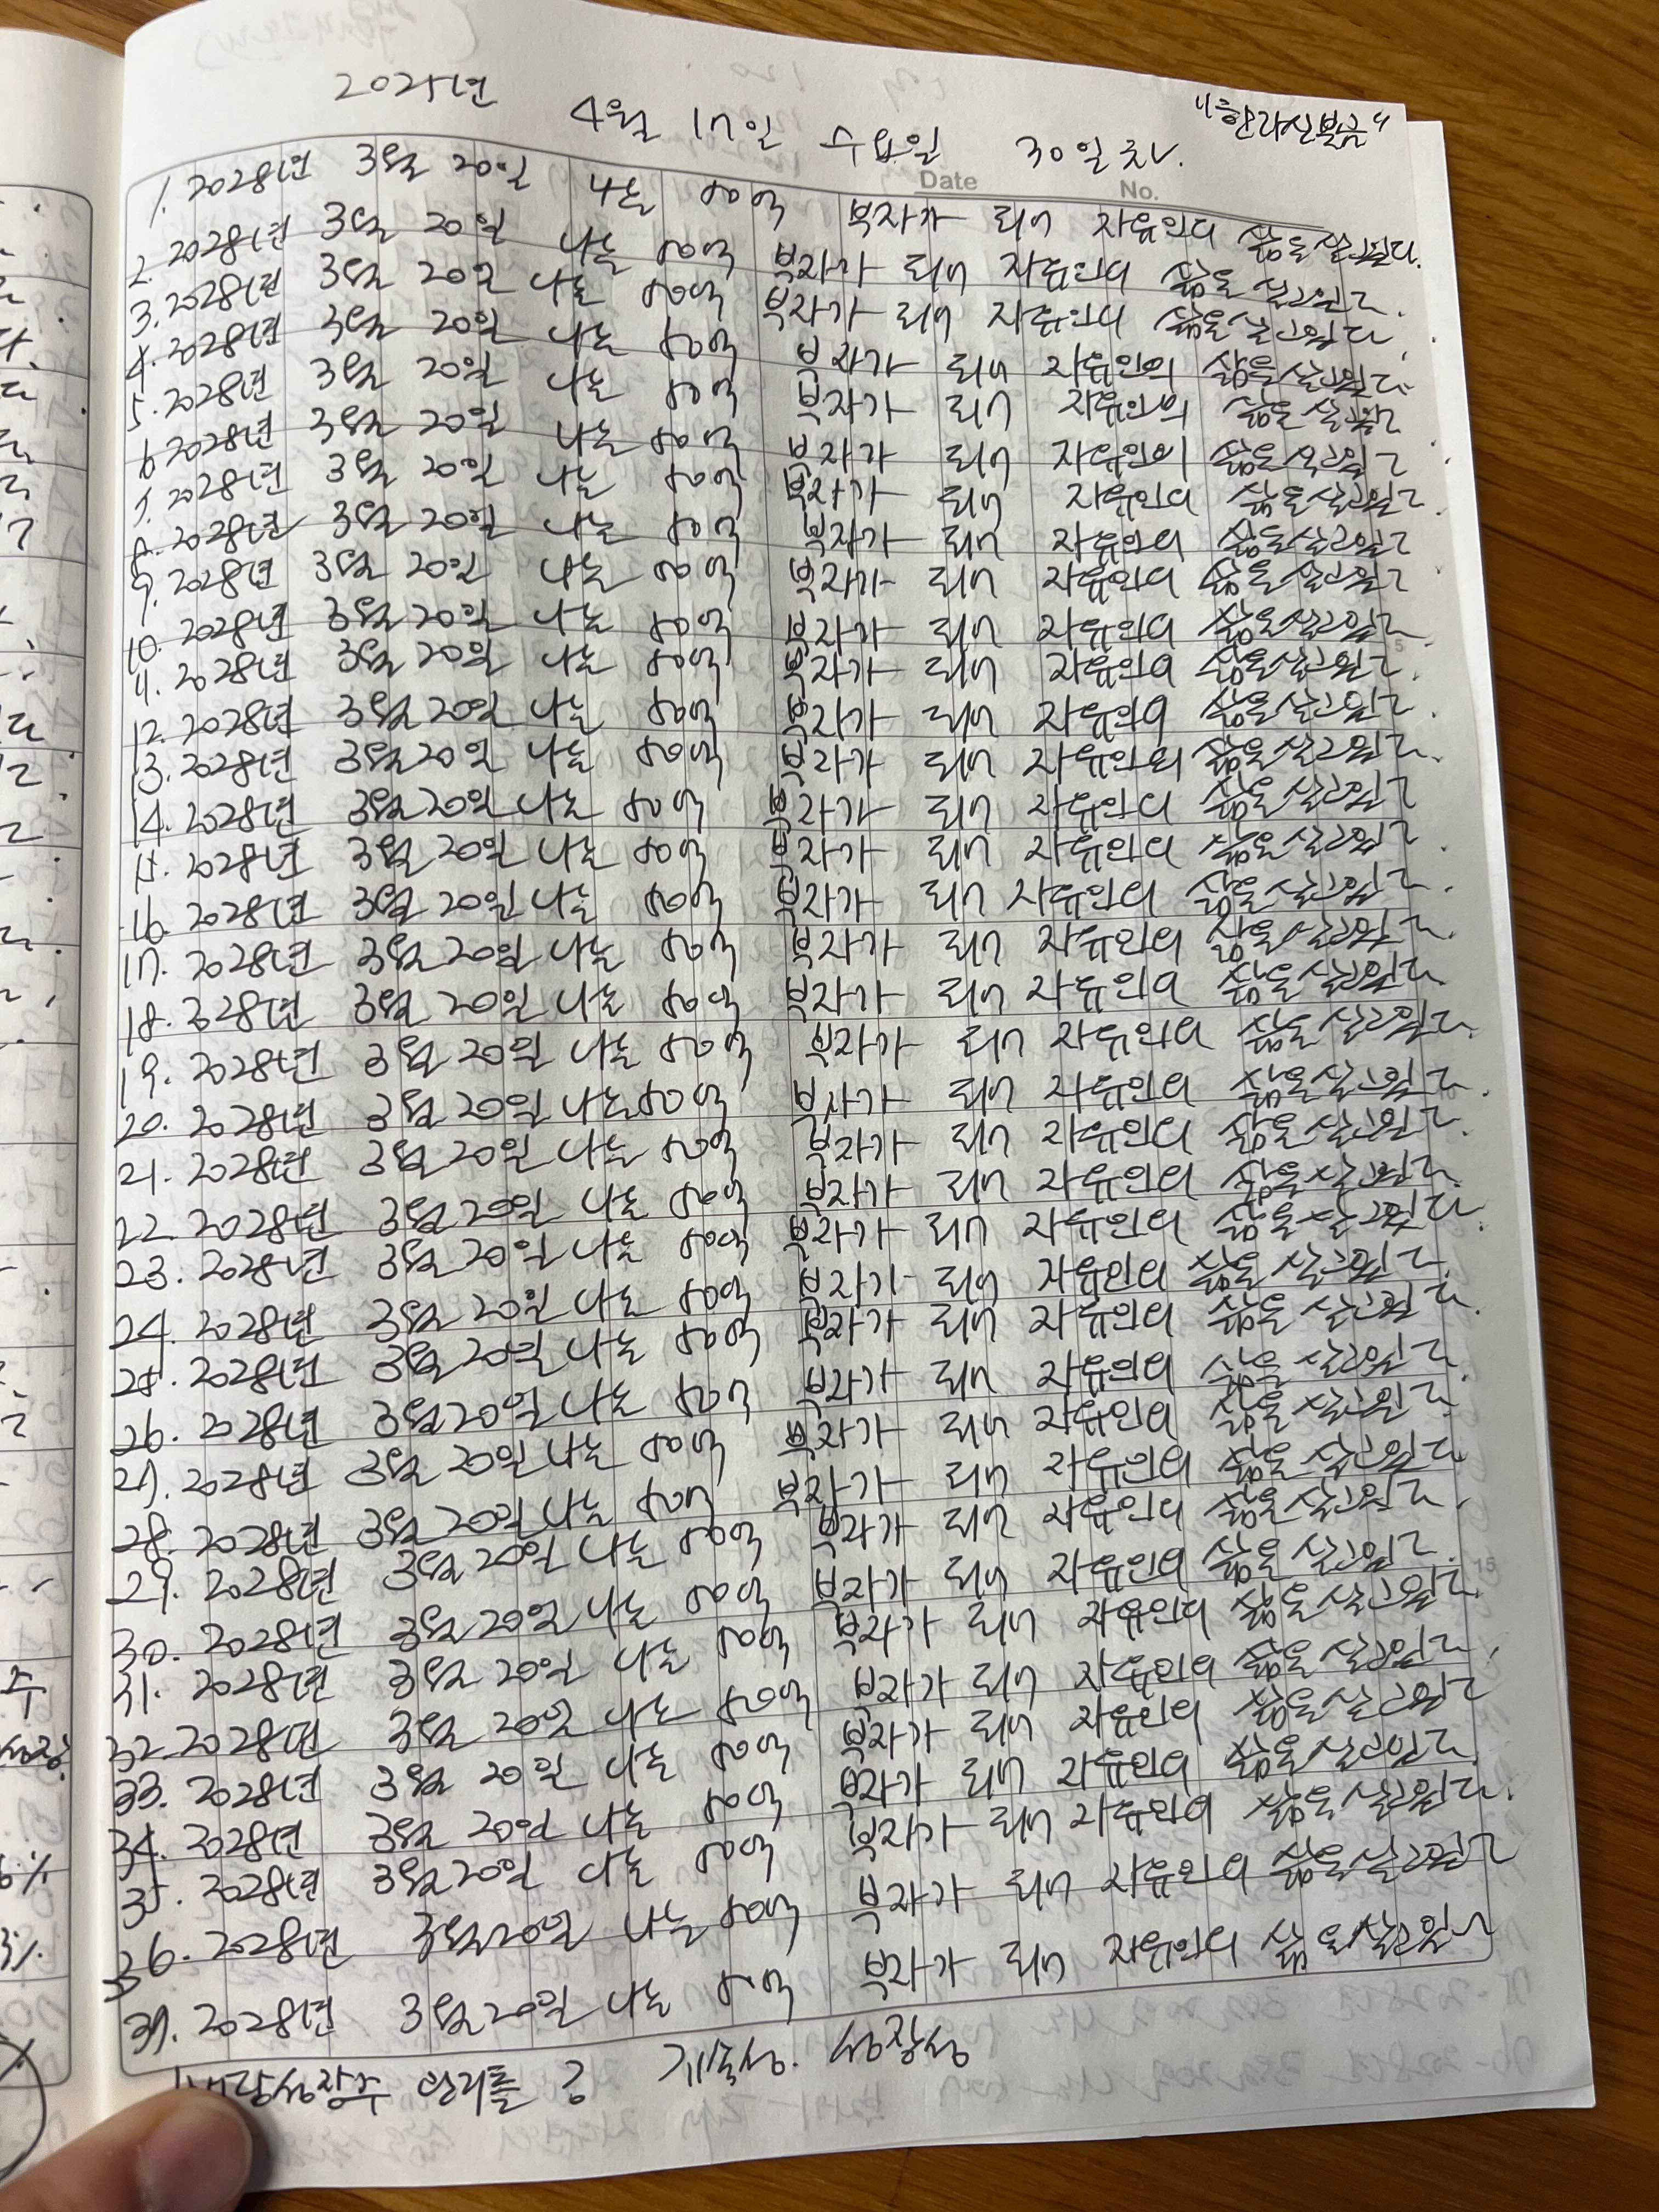 2025년 4월 17일 수요일 30일차.
Date No.
1. 2028년 3월 20일 나는 80억 부자가 되어 자유인의 삶을 살고있다.
2. 2028년 3월 20일 나는 80억 부자가 되어 자유인의 삶을 살고있다.
3. 2028년 3월 20일 나는 80억 부자가 되어 자유인의 삶을 살고있다.
4. 2028년 3월 20일 나는 80억 부자가 되어 자유인의 삶을 살고있다.
5. 2028년 3월 20일 나는 80억 부자가 되어 자유인의 삶을 살고있다
6. 2028년 3월 20일 나는 80억 부자가 되어 자유인의 삶을 살고있다
7. 2028년 3월 20일 나는 80억 부자가 되어 자유인의 삶을 살고있다.
8. 2028년 3월 20일 나는 80억 부자가 되어 자유인의 삶을 살고있다
9. 2028년 3월 20일 나는 80억 부자가 되어 자유인의 삶을 살고있다.
10. 2028년 3월 20일 나는 80억 부자가 되어 자유인의 삶을 살고있다.
11. 2028년 3월 20일 나는 80억 부자가 되어 자유인의 삶을 살고있다.
12. 2028년 3월 20일 나는 80억 부자가 되어 자유인의 삶을 살고있다.
13. 2028년 3월 20일 나는 80억 부자가 되어 자유인의 삶을 살고있다.
14. 2028년 3월 20일 나는 80억 부자가 되어 자유인의 삶을 살고있다
15. 2028년 3월 20일 나는 80억 부자가 되어 자유인의 삶을 살고있다.
16. 2028년 3월 20일 나는 80억 부자가 되어 자유인의 삶을 살고있다.
17. 2028년 3월 20일 나는 80억 부자가 되어 자유인의 삶을 살고있다.
18. 2028년 3월 20일 나는 80억 부자가 되어 자유인의 삶을 살고있다.
19. 2028년 3월 20일 나는 80억 부자가 되어 자유인의 삶을 살고있다.
20. 2028년 3월 20일 나는 80억 부자가 되어 자유인의 삶을 살고있다.
21. 2028년 3월 20일 나는 80억 부자가 되어 자유인의 삶을 살고있다.
22. 2028년 3월 20일 나는 80억 부자가 되어 자유인의 삶을 살고있다.
23. 2028년 3월 20일 나는 80억 부자가 되어 자유인의 삶을 살고있다.
24. 2028년 3월 20일 나는 80억 부자가 되어 자유인의 삶을 살고있다.
25. 2028년 3월 20일 나는 80억 부자가 되어 자유인의 삶을 살고있다.
26. 2028년 3월 20일 나는 80억 부자가 되어 자유인의 삶을 살고있다.
27. 2028년 3월 20일 나는 80억 부자가 되어 자유인의 삶을 살고있다.
28. 2028년 3월 20일 나는 80억 부자가 되어 자유인의 삶을 살고있다.
29. 2028년 3월 20일 나는 80억 부자가 되어 자유인의 삶을 살고있다.
30. 2028년 3월 20일 나는 80억 부자가 되어 자유인의 삶을 살고있다.
31. 2028년 3월 20일 나는 80억 부자가 되어 자유인의 삶을 살고있다.
32. 2028년 3월 20일 나는 80억 부자가 되어 자유인의 삶을 살고있다.
33. 2028년 3월 20일 나는 80억 부자가 되어 자유인의 삶을 살고있다
34. 2028년 3월 20일 나는 80억 부자가 되어 자유인의 삶을 살고있다.
35. 2028년 3월 20일 나는 80억 부자가 되어 자유인의 삶을 살고있다.
36. 2028년 3월 20일 나는 80억 부자가 되어 자유인의 삶을 살고있다
37. 2028년 3월 20일 나는 80억 부자가 되어 자유인의 삶을 살고있다
배당성장주 언리톨 ? 계속성. 성장성